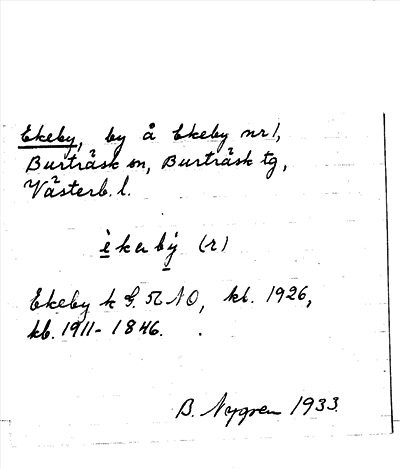 Ekeby, by å Ekeby nr 1,
Burträsk sn, Burträsk tg,
Västerb. l.
èkabý (r)
Ekeby k G. K N O, kl. 1926,
kb. 1911-1846.
B. Nygren 1933.